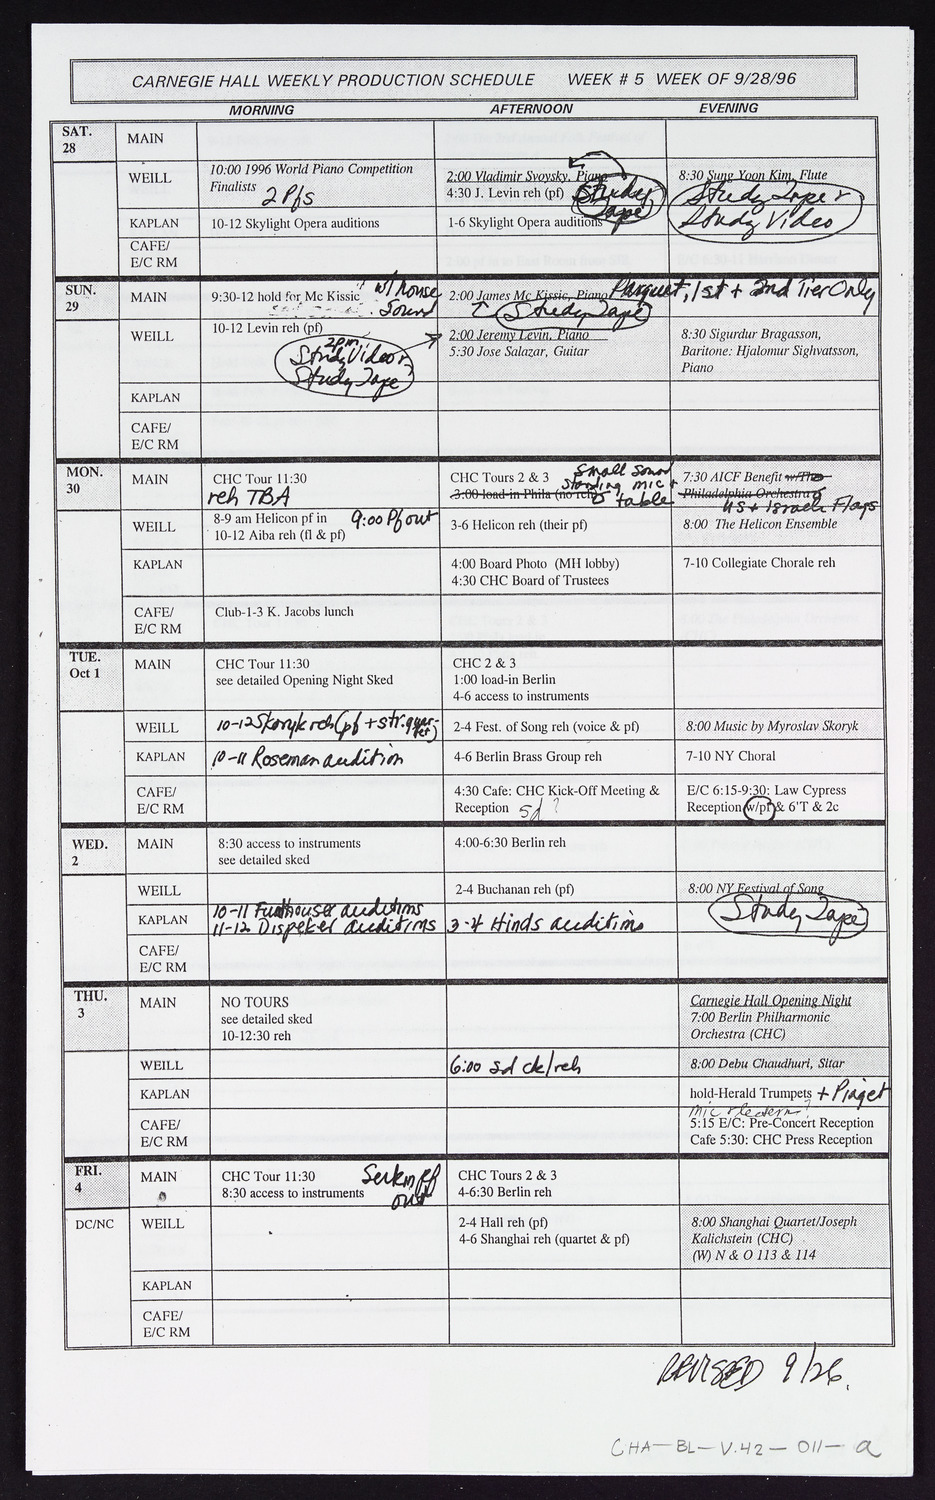 CARNEGIE HALL WEEKLY PRODUCTION SCHEDULE WEEK # 5 WEEK OF 9/28/96
MORNING AFTERNOON EVENING
SAT.
28
MAIN
WEILL
10:00 1996 World Piano Competition
Finalists
2 Pfs
2:00 Vladimir Svoysky, Piano
4:30 J. Levin reh (pf)
Study
Tape
8:30 Sung Yoon Kim, Flute
Study Tape +
Study Video
KAPLAN
10-12 Skylight Opera auditions
1-6 Skylight Opera auditions
CAFE/
E/C RM
SUN.
29
MAIN
9:30-12 hold for Mc Kissic
w/ House
Sound
2:00 James Mc Kissic, Piano
Parquet, 1st + 2nd Tier Only
Study Tape
WEILL
10-12 Levin reh (pf)
2pm
Study Video +
Study Tape
2:00 Jeremy Levin, Piano
5:30 Jose Salazar, Guitar
8:30 Sigurdur Bragasson,
Baritone: Hjalomur Sighvatsson,
Piano
KAPLAN
CAFE/
E/C RM
MON.
30
MAIN
CHC Tour 11:30
reh TBA
CHC Tours 2 & 3
3:00 load-in Phila (no reh)
Small sound
standing mic +
table
7:30 AICF Benefit w/The
Philadelphia Orchestra
US + Israeli Flags
WEILL
8-9 am Helicon pf in
10-12 Aiba reh (fl & pf)
9:00 Pf out
3-6 Helicon reh (their pf)
8:00 The Helicon Ensemble
KAPLAN
4:00 Board Photo (MH lobby)
4:30 CHC Board of Trustees
7-10 Collegiate Chorale reh
CAFE/
E/C RM
Club-1-3 K. Jacobs lunch
TUE.
Oct 1
MAIN
CHC Tour 11:30
see detailed Opening Night Sked
CHC 2 & 3
1:00 load-in Berlin
4-6 access to instruments
WEILL
10-12 Skoryk reh (pf + str. quartet)
2-4 Fest. of Song reh (voice & pf)
8:00 Music by Myroslav Skoryk
KAPLAN
10-11 Roseman audition
4-6 Berlin Brass Group reh
7-10 NY Choral
CAFE/
E/C RM
4:30 Cafe: CHC Kick-Off Meeting &
Reception
sd ?
E/C 6:15-9:30: Law Cypress
Reception w/pf & 6'T & 2c
WED.
2
MAIN
8:30 access to instruments
see detailed sked
4:00-6:30 Berlin reh
WEILL
2-4 Buchanan reh (pf)
8:00 NY Festival of Song
Study Tape
KAPLAN
10-11 Funthouser auditions
11-12 Dispeker auditions
3-4 Hinds auditions
CAFE/
E/C RM
THU.
3
MAIN
NO TOURS
see detailed sked
10-12:30 reh
Carnegie Hall Opening Night
7:00 Berlin Philharmonic
Orchestra (CHC)
WEILL
6:00 sd ck/reh
8:00 Debu Chaudhuri, Sitar
KAPLAN
hold-Herald Trumpets + Piaget
mic + lectern?
CAFE/
E/C RM
5:15 E/C: Pre-Concert Reception
Cafe 5:30: CHC Press Reception
FRI.
4
MAIN
CHC Tour 11:30
8:30 access to instruments
Serkin pf
out
CHC Tours 2 & 3
4-6:30 Berlin reh
DC/NC
WEILL
2-4 Hall reh (pf)
4-6 Shanghai reh (quartet & pf)
8:00 Shanghai Quartet/Joseph
Kalichstein (CHC)
(W) N & O 113 & 114
KAPLAN
CAFE/
E/C RM
REVISED 9/26.
CHA-BL-V.42-011-a